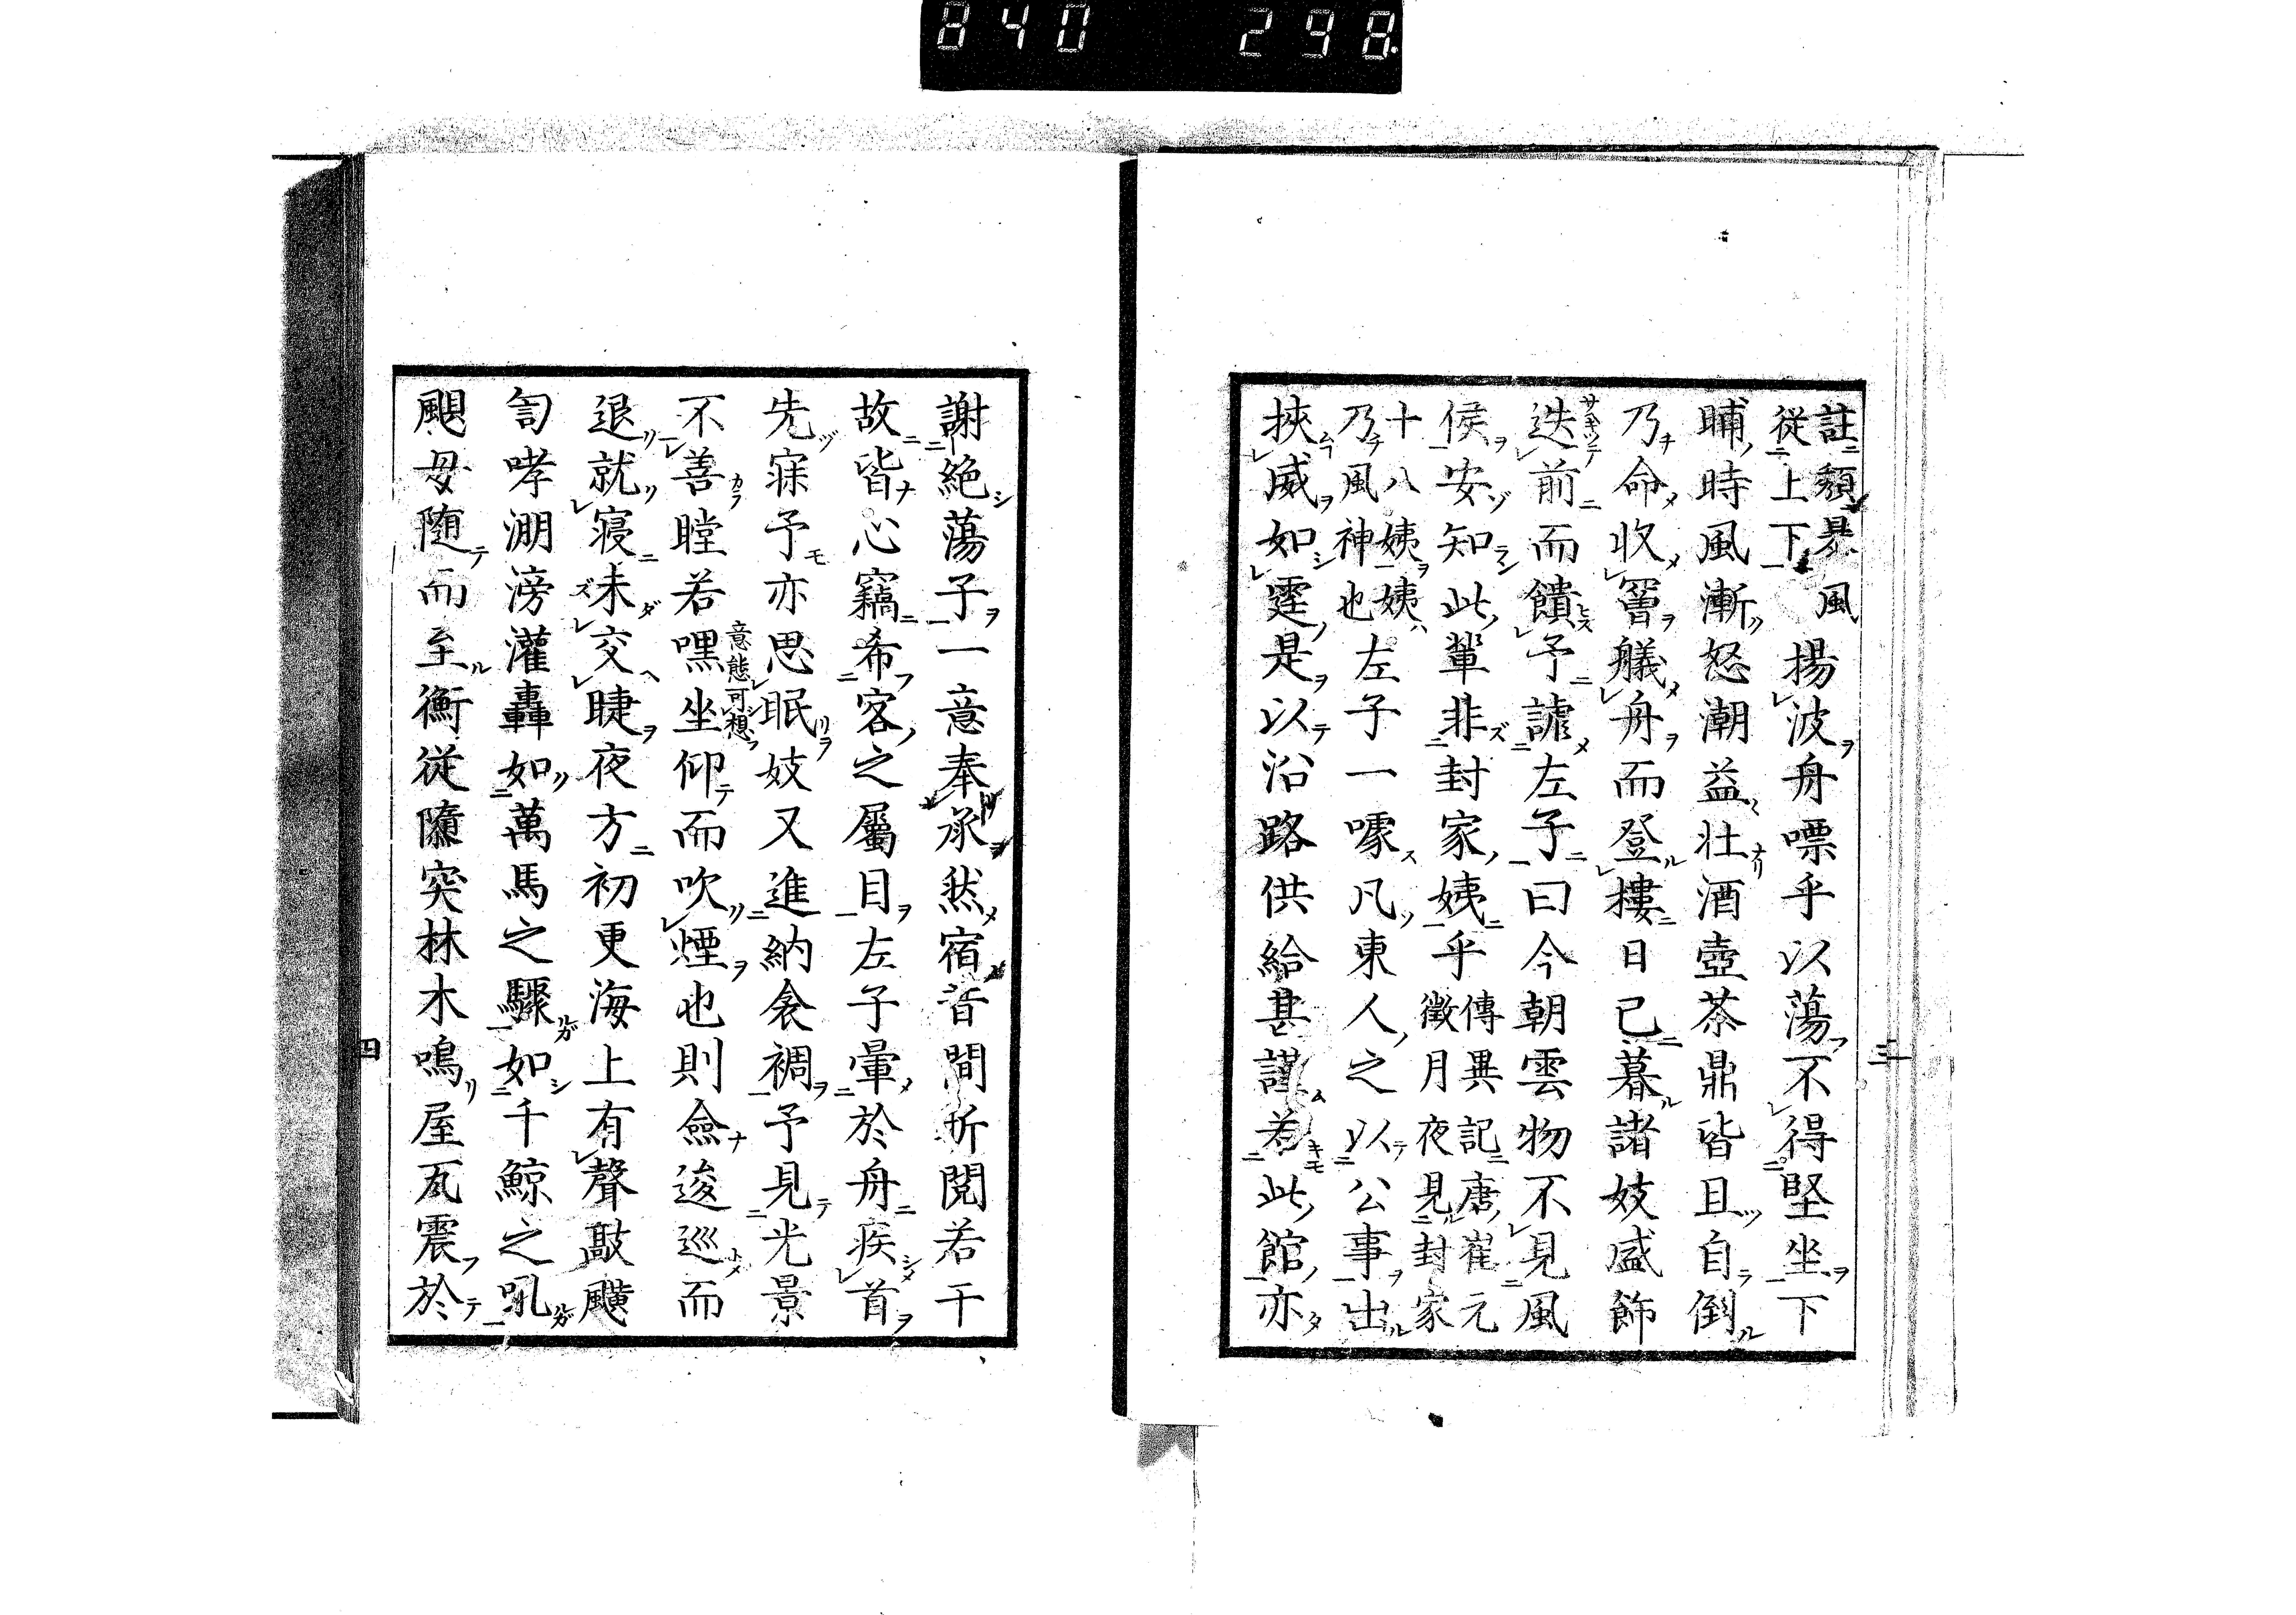 840 298
註頽暴風
從上下
揚波舟嘌乎以蕩不得堅坐下
晡時風漸怒潮益壯酒壺茶鼎皆且自倒
乃命收罾艤舟而登樓日已暮諸妓盛飾
迭前而饋予謔左子曰今朝雲物不見風
侯安知此輩非封家姨乎
傳異記唐崔元
徵月夜見封家
十八姨姨
乃風神也
左子一噱凡東人之以公事出
挾威如霆是以沿路供給甚謹若此館亦
三
謝絶蕩子一意奉承然宿昔間折閲若干
故皆心竊希客之屬目左子暈於舟疾首
先寐予亦思眠妓又進納衾裯予見光景
不善瞠若嘿坐仰而吹煙也則僉逡巡而
意態可想
退就寝未交睫夜方初更海上有聲敲颺
訇哮淜滂灌轟如萬馬之驟如千鯨之吼
颶母随而至衝従隳突林木鳴屋瓦震於
四